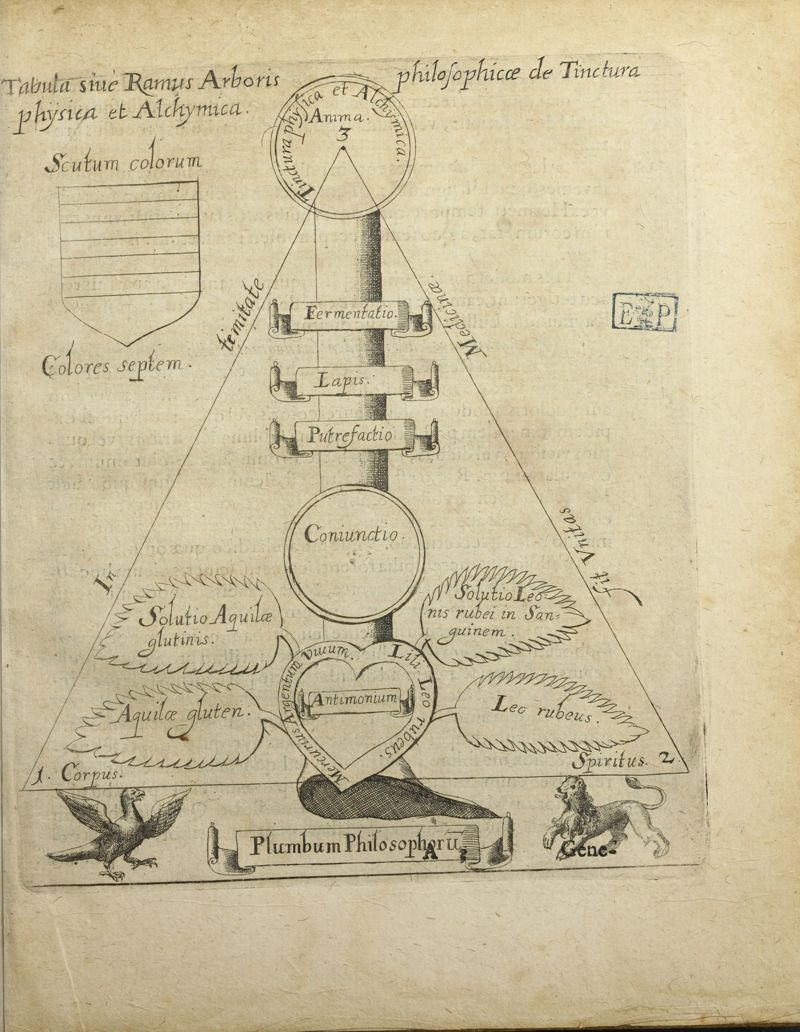 Tabula siue Ramus Arboris philosophicæ de Tinctura
physica et Alchymica.
Tinctura physica et Alchymica.
Anima.
3
Scutum colorum
Colores septem.
In trinitate
Medicinæ.
fit Vnitas
E P
Fermentatio.
Lapis.
Putrefactio
Coniunctio.
Solutio Aquilæ
glutinis.
Solutio Leo-
nis rubei in San-
guinem.
Mercurius Argentum Viuum.
Lili Leo rubeus.
Antimonium
Aquilæ gluten.
Leo rubeus.
1. Corpus.
Spiritus. 2.
Plumbum Philosophorũ
A 3
Gene-